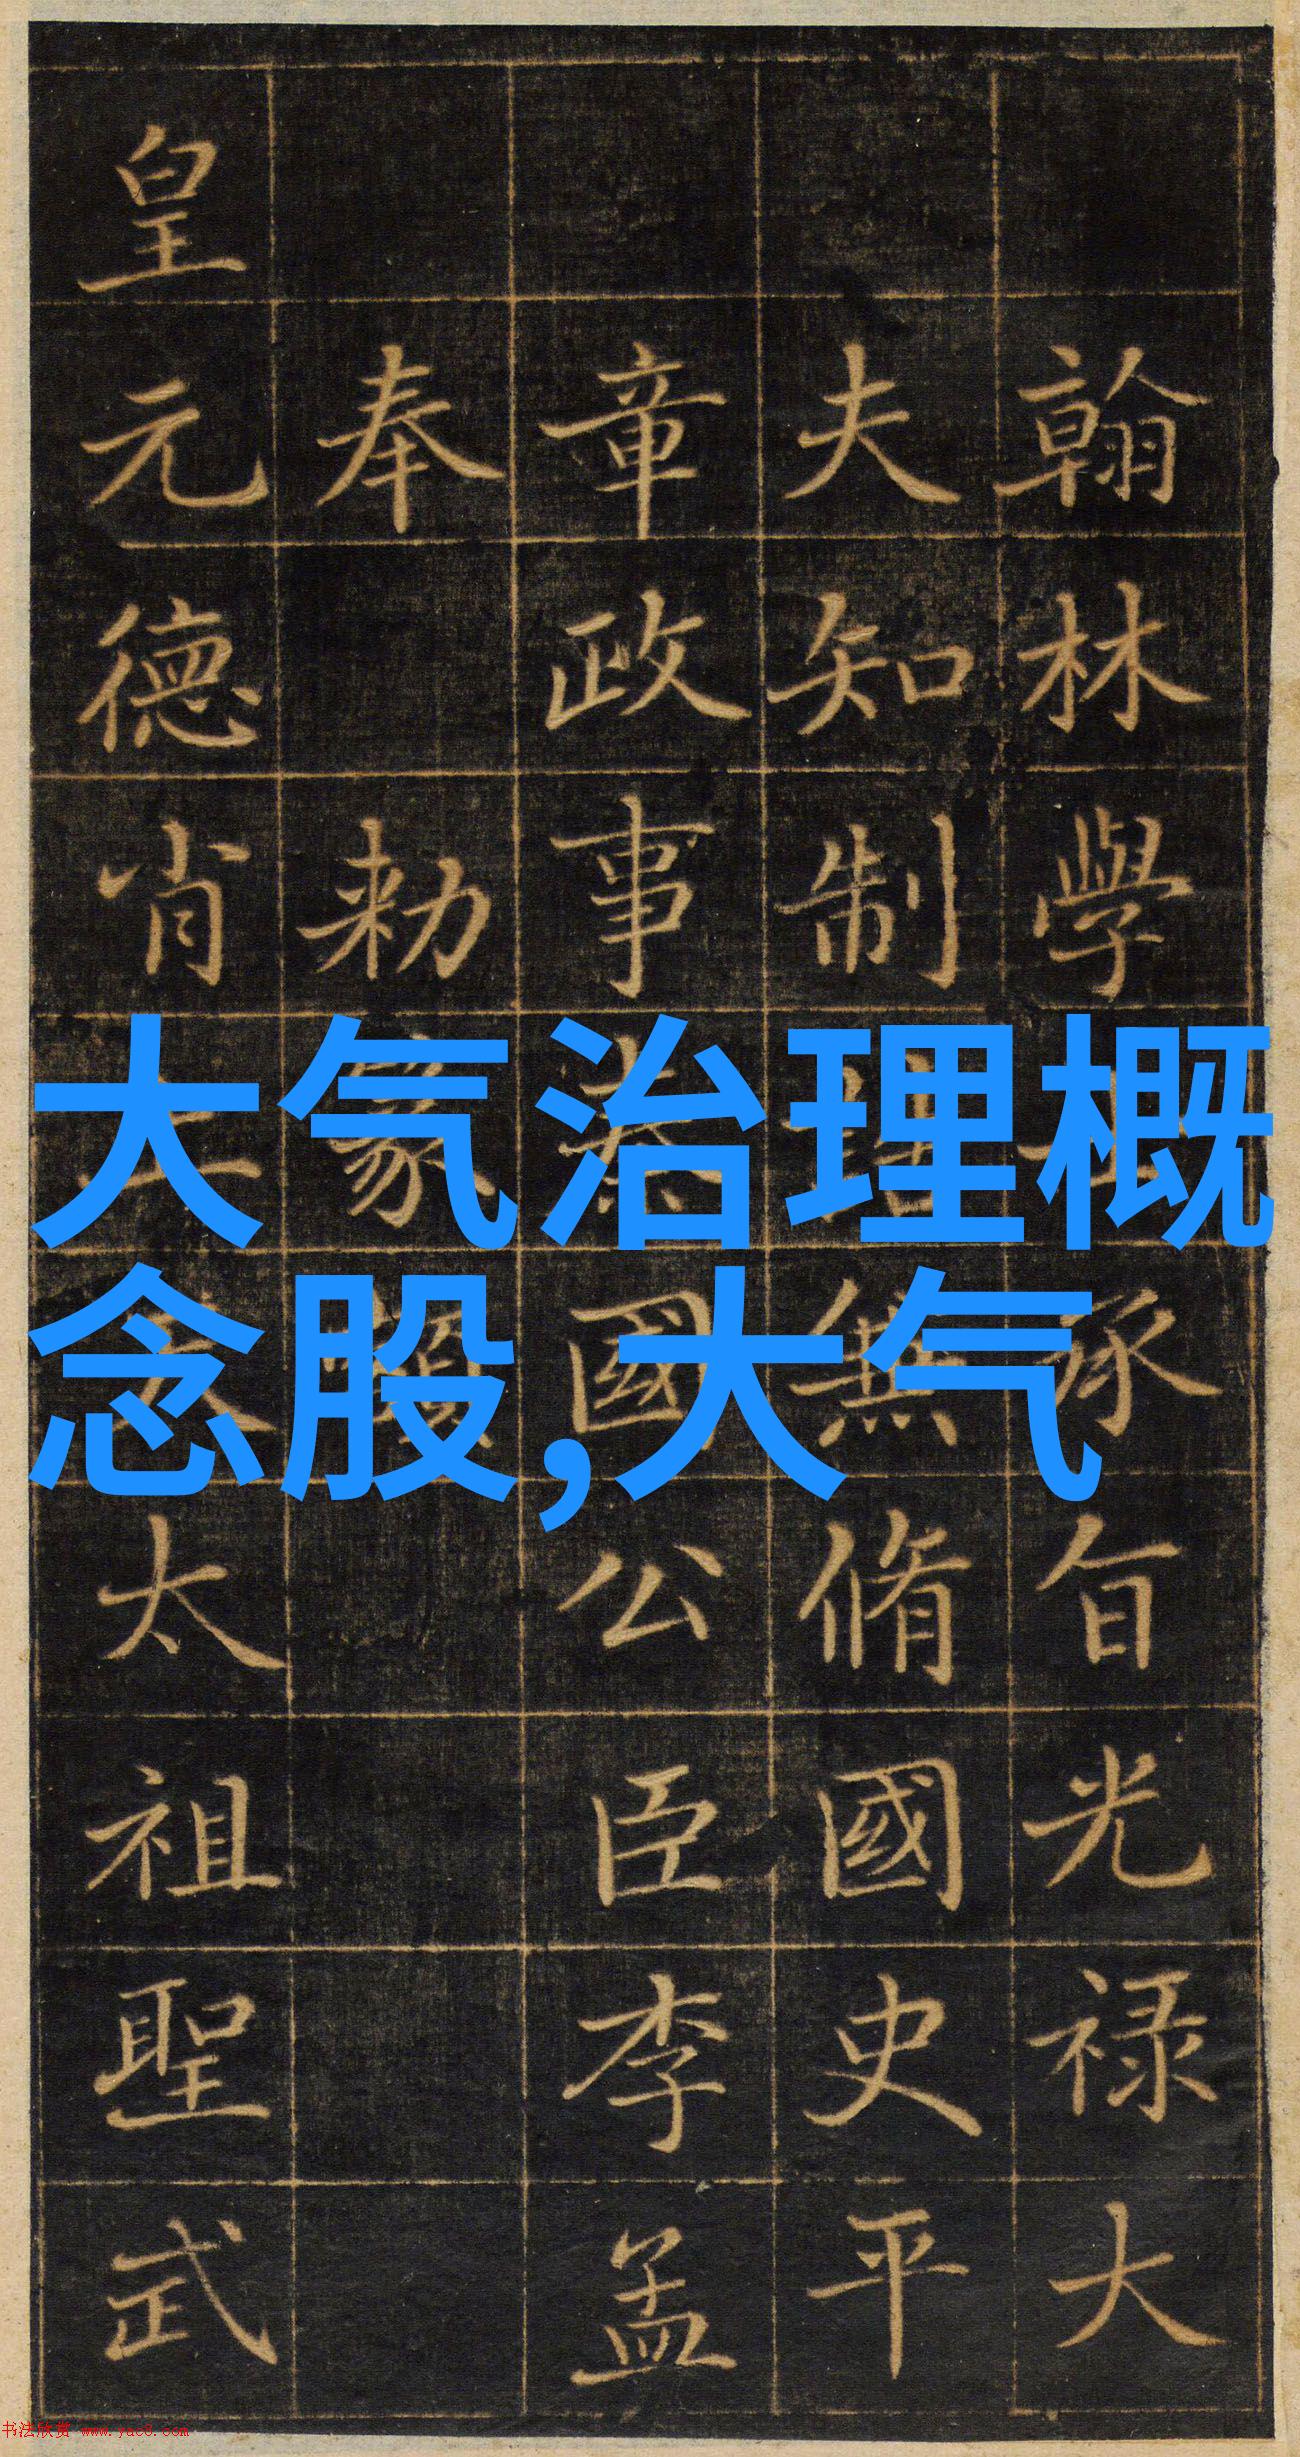 翰林學士承旨光禄大
夫知制誥兼脩國史平
章政事秦國公臣李孟
奉勑篆額
皇元德肖上天太祖聖武
大气治理概
念股,大气
书法欣赏 www.yac8.com